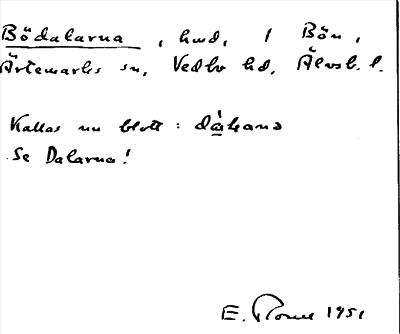 Bödalarna, hmd, / Bön,
Ärtemarks sn, Vedbo hd, Älvsb. l.
Kallas nu blott:
Se Dalarna!
E. 1951